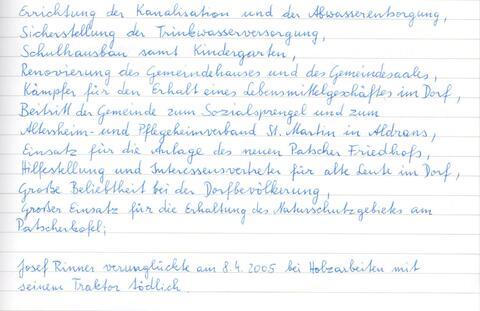 Errichtung der Kanalisation und der Abwasserentsorgung,
Sicherstellung der Trinkwasserversorgung,
Schulhausbau samt Kindergarten,
Renovierung des Gemeindehauses und des Gemeindesaales,
Kämpfer für den Erhalt eines Lebensmittelgeschäftes im Dorf,
Beitritt der Gemeinde zum Sozialsprengel und zum
Altersheim- und Pflegeheimverband St. Martin in Aldrans,
Einsatz für die Anlage des neuen Patscher Friedhofs,
Hilfestellung und Interessensvertreter für alte Leute im Dorf,
Große Beliebtheit bei der Dorfbevölkerung,
Großer Einsatz für die Erhaltung des Naturschutzgebietes am
Patscherkofel;
Josef Rinner verunglückte am 8.4.2005 bei Holzarbeiten mit
seinem Traktor tödlich.